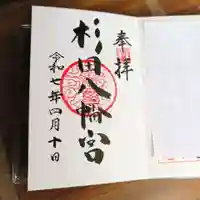 奉拝
杉田八幡宮
令和七年四月十日